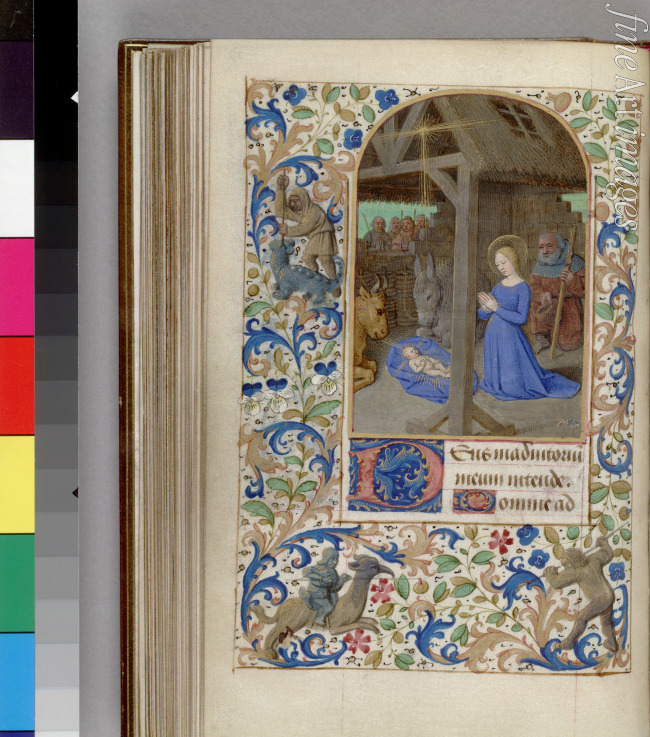 Deus in adiutoriu
meum intende.
Domine ad
fine Art images